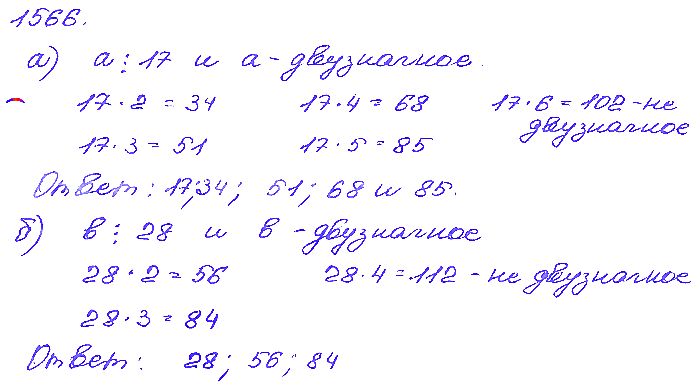 1566.
а) а ⋮ 17 и а - двузначное.
17 · 2 = 34 17 · 4 = 68 17 · 6 = 102 - не двузначное
17 · 3 = 51 17 · 5 = 85
Ответ: 17; 34; 51; 68 и 85.
б) в ⋮ 28 и в - двузначное
28 · 2 = 56 28 · 4 = 112 - не двузначное
28 · 3 = 84
Ответ: 28; 56; 84